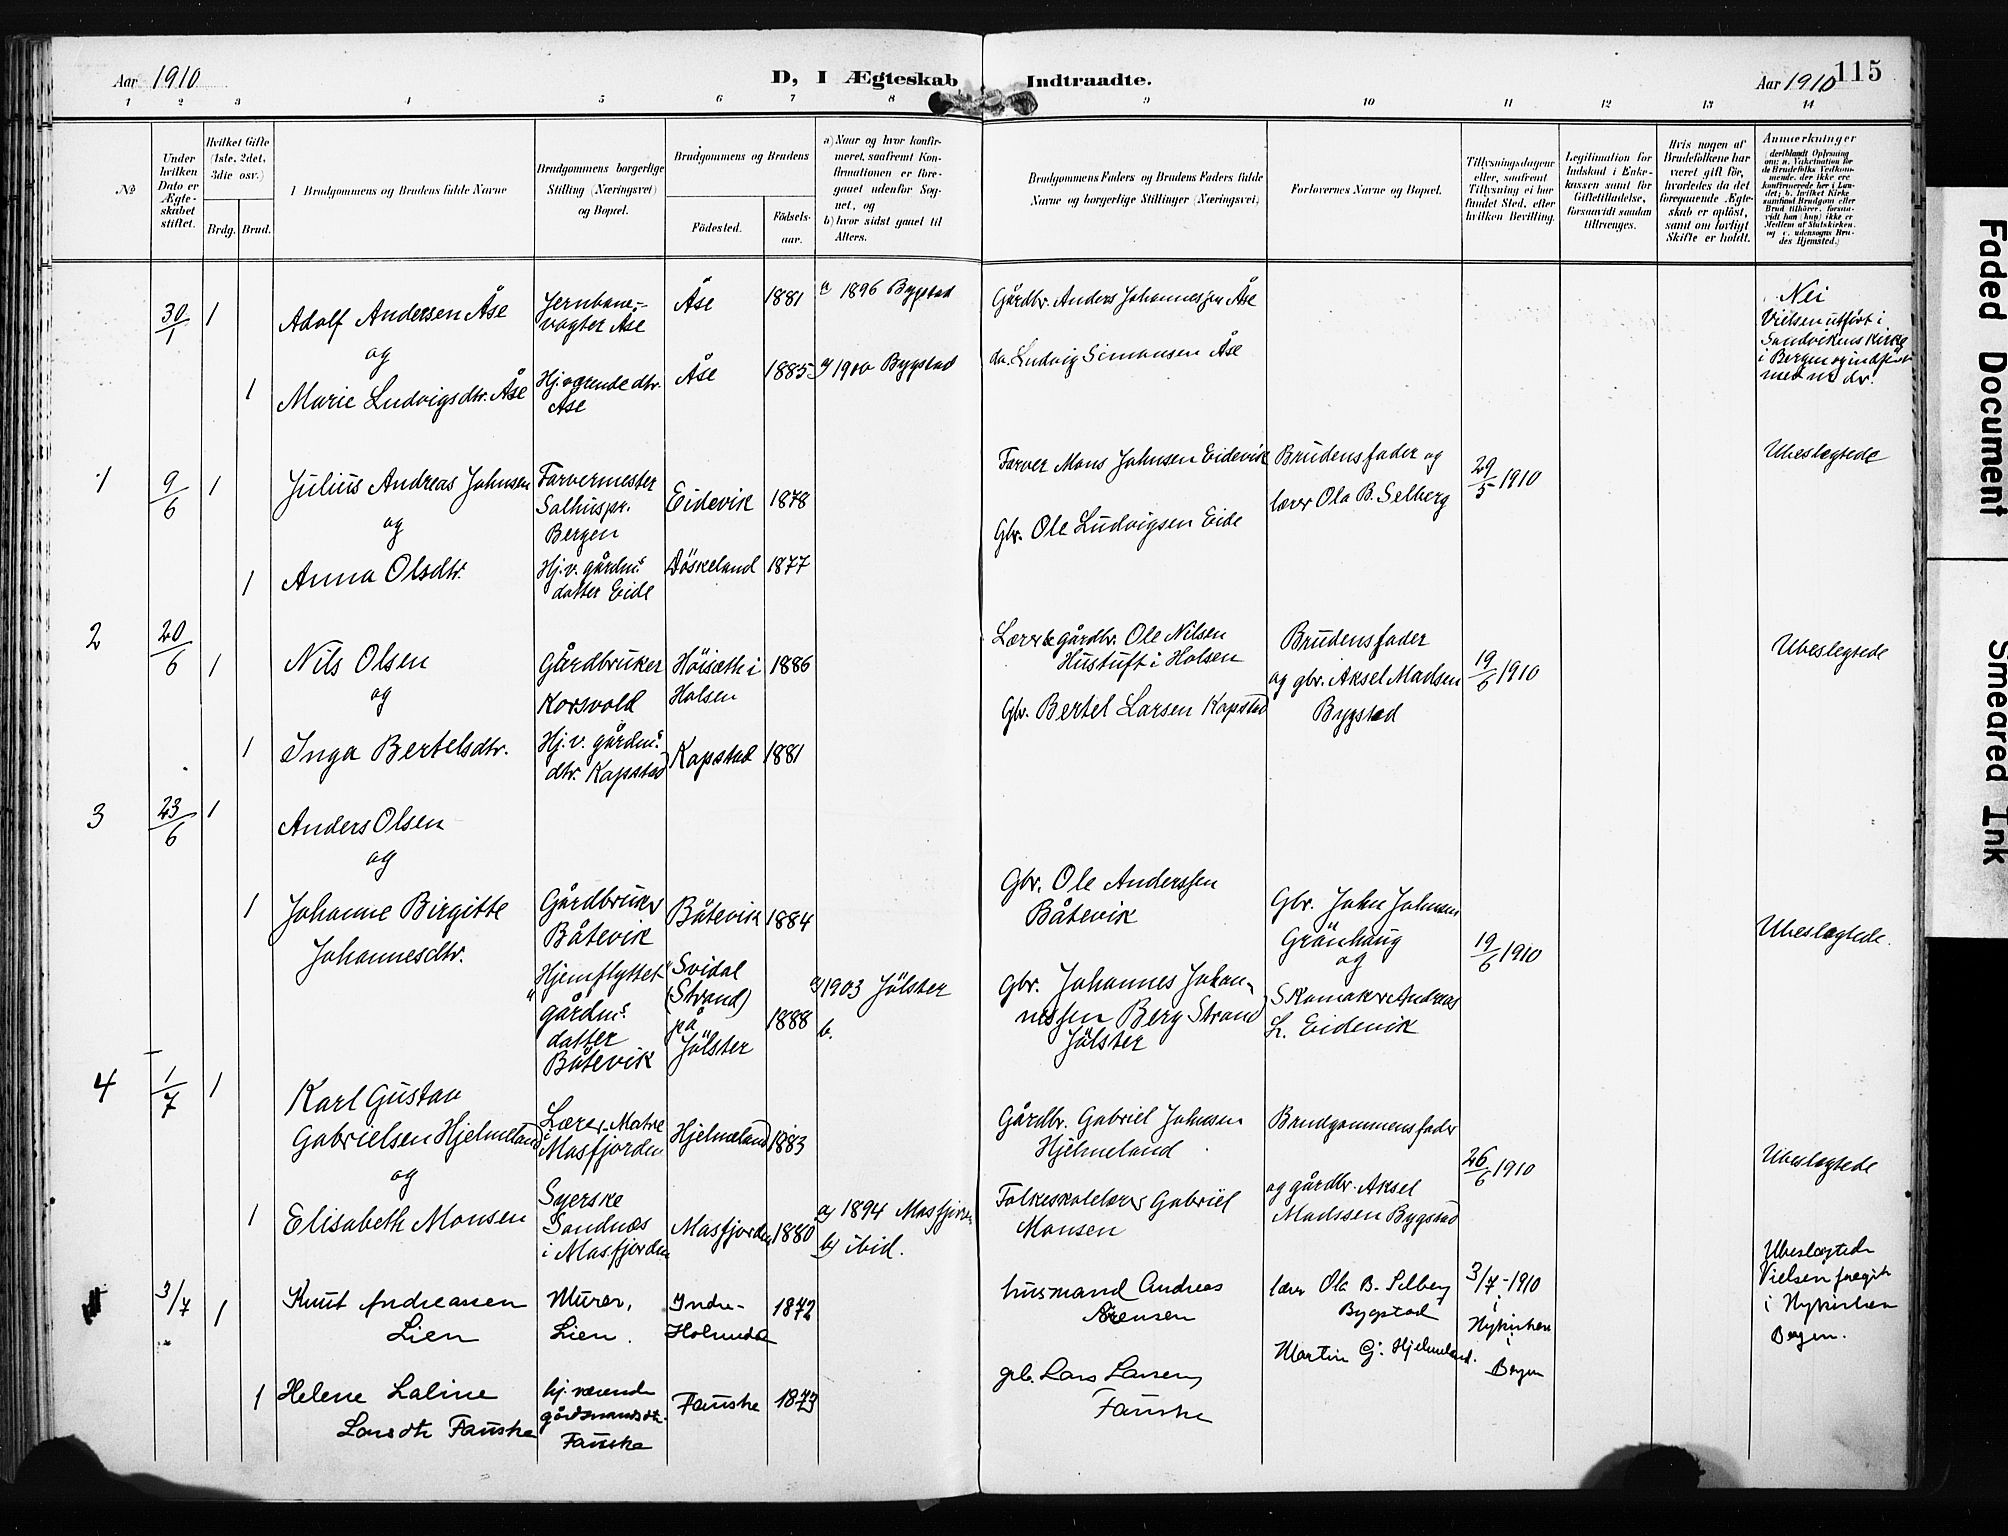 Aar 1910
D, I Ægteskab Indtraadte.
Aar 1910 115
1 2 3 4 5 6 7 8 9 10 11 12 13 14
№
Under hvilken Dato er Ægteskabet stiftet.
Hvilket Gifte (1ste, 2det, 3die osv.)
Brdg. Brud.
Brudgommens og Brudens fulde Navne
Brudgommens borgerlige Stilling (Næringsvei) og Bopæl.
Brudgommens og Brudens
Fødested.
Fødselsaar.
a) Naar og hvor konfirmeret, saafremt Konfirmationen er foregaaet udenfor Sognet, og
b) hvor sidst gaaet til Alters.
Brudgommens Faders og Brudens Faders fulde Navne og borgerlige Stillinger (Næringsvei)
Forlovernes Navne og Bopæl.
Tillysningsdagene eller, saafremt Tillysning ei har fundet Sted, efter hvilken Bevilling.
Legitimation for Indskud i Enkekassen samt for Giftetilladelse, forsaavidt saadan tiltrænges.
Hvis nogen af Brudefolkene har været gift før, hvorledes da det foregaaende Ægteskab er opløst, samt om lovligt Skifte er holdt.
Anmærkninger
30/1 1 Adolf Andersen Åse
Jernbanevogter Åse
Åse 1881 a 1896 Bygstad
Gårdbr. Anders Johannessen Åse
og
1 Marie Ludvigsdtr. Åse
Hj.værende dtr. Åse
Åse 1885 a) 1900 Bygstad
do. Ludvig Simonsen Åse
Nei
Vielsen utført i
Sandvikens kirke
i Bergen og indført
1 9/6 1 Julius Andreas Johnsen
Farvermester
Salhus pr.
Bergen
Eidevik 1878
Farver Mons Johnsen Eidevik
Brudens fader og
lærer Ola B. Selberg
29/5 1910
Ubeslegtede
og
1 Anna Olsdtr.
Hj.v. gårdm.s
datter Eide
Döskeland 1877
Gbr. Ole Ludvigsen Eide
2 20/6 1 Nils Olsen
Gårdbruker
Korsvold
Höisæth i
Holsen
1886
Lærer & gårdbr. Ole Nilsen
Hustuft i Holsen
Brudens fader
og gbr. Aksel Madsen
Bygstad
19/6 1910
Ubeslegtede
og
1 Inga Bertelsdtr.
Hj.v. gårdm.s
dtr. Kapstad
Kapstad 1881
Gbr. Bertel Larsen Kapstad
3 23/6 1 Anders Olsen
og
1 Johanne Birgitte
Johannesdtr.
Gårdbruker
Båtevik
Båtevik 1884
Gbr. Ole Anderssen
Båtevik
Gbr. John Johnsen
Grönhaug
og
Skomaker Andreas
L. Eidevik
19/6 1910
Ubeslegtede.
Hjemflyttet
gårdm.s
datter
Båtevik
Svidal
(Strand)
på
Jölster
1888
a) 1903 Jölster
b.
Gbr. Johannes Johannessen
Berg Strand
Jölster
4 1/7 1 Karl Gustav
Gabrielsen Hjelmeland
Lærer Matre
i Masfjorden
Hjelmeland 1883
Gårdbr. Gabriel Johnsen
Hjelmeland
Brudgommens fader
og gårdbr. Aksel
Madssen Bygstad
26/6 1910
Ubeslegtede
og
1 Elisabeth Monsen
Syerske
Sandnæs
i Masfjorden
Masfjorden 1880
a) 1894 Masfjorden
b) ibid.
Folkeskolelærer Gabriel
Monsen
3/7 1 Knut Andreassen
Lien
Murer,
Lien.
Indre-
Holmedal
1872
husmand Andreas
Sørensen
lærer Ola B. Selberg
Bygstad
Martin G. Hjelmeland.
3/7-1910
i
Nykirken
i
Bergen
Ubeslegtede
Vielsen foregik
i Nykirken
Bergen.
1 Helene Laline
Larsdtr Fauske
hj.værende
gårdmandsdtr.
Fauske
Fauske 1873
grb. Lars Larsen,
Fauske
Faded Document
Smeared Ink